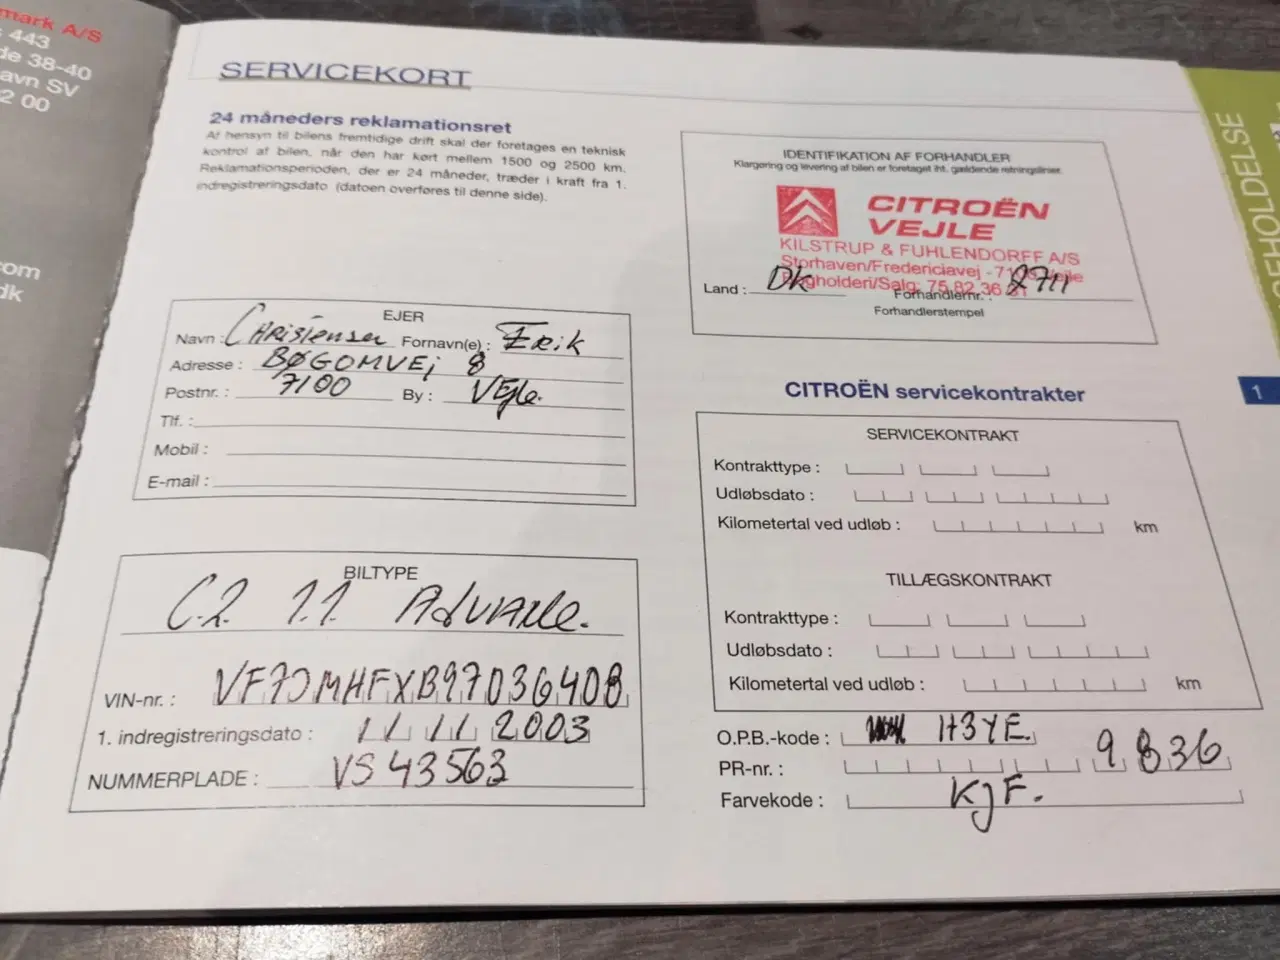 mark A/S
443
de 38-40
avn SV
2 00
com
dk
SERVICEKORT
24 måneders reklamationsret
Af hensyn til bilens fremtidige drift skal der foretages en teknisk
kontrol af bilen, når den har kørt mellem 1500 og 2500 km.
Reklamationsperioden, der er 24 måneder, træder i kraft fra 1.
indregistreringsdato (datoen overføres til denne side).
EJER
Navn : CHRISTENSEN Fornavn(e) : ERIK
Adresse : BØGOMVEJ 8
Postnr. : 7100 By : VEJLE.
Tlf. :
Mobil :
E-mail :
BILTYPE
C2 1.1 ADVANCE.
VIN-nr. :
1. indregistreringsdato : 11 11 2003
NUMMERPLADE : VS 43563
IDENTIFIKATION AF FORHANDLER
Klargøring og levering af bilen er foretaget iht. gældende retningslinier.
CITROËN
VEJLE
KILSTRUP & FUHLENDORFF A/S
Storhaven/Fredericiavej - 7100 Vejle
Bogholderi/Salg: 75 82 36
Land : DK Forhandlernr. : 2711
Forhandlerstempel
CITROËN servicekontrakter
SERVICEKONTRAKT
Kontrakttype :
Udløbsdato :
Kilometertal ved udløb : km
TILLÆGSKONTRAKT
Kontrakttype :
Udløbsdato :
Kilometertal ved udløb : km
O.P.B.-kode : H3YE.
PR-nr. : 9836
Farvekode : KJF.
EHOLDELSE
1